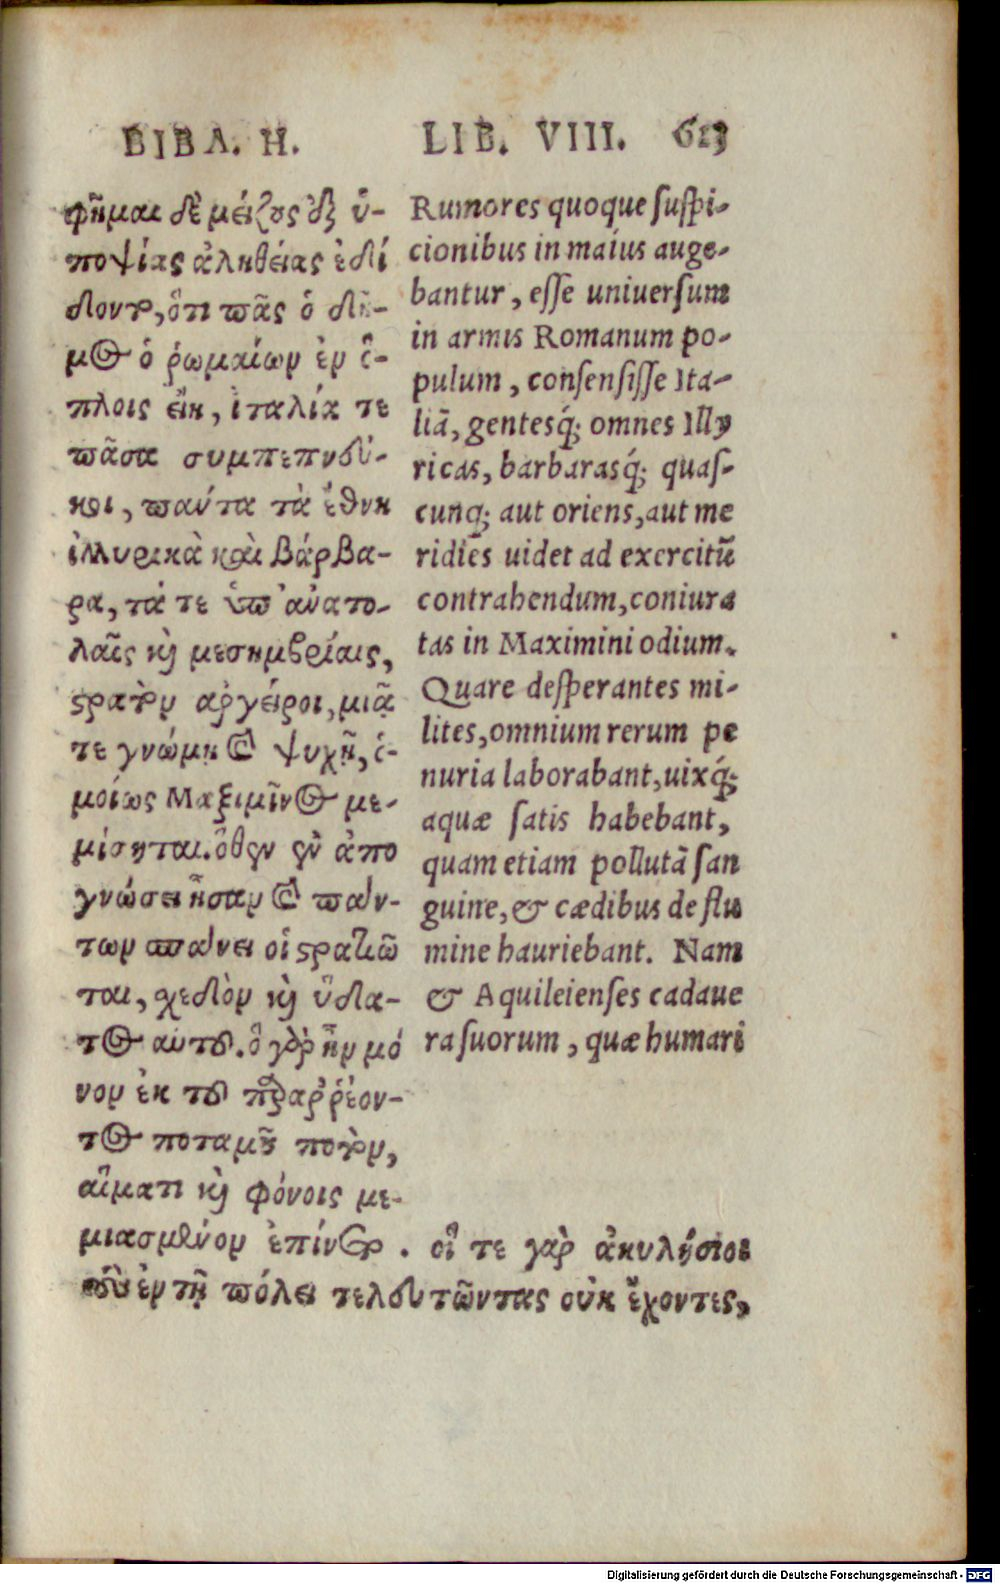 ΒΙΒΛ. Η.
φῆμαι δὲ μείζους ἐξ ὑ-
ποψίας ἀληθείας ἐδί
δοντο, ὅτι πᾶς ὁ δῆ-
μος ὁ ῥωμαίων ἐν ὅ-
πλοις εἴη, ἰταλία τε
πᾶσα συμπεπνεύ-
κοι, πάντα τὰ ἔθνη
ἰλλυρικὰ καὶ βάρβα-
ρα, τά τε ὑπ' ἀνατο-
λαῖς καὶ μεσημβρίαις,
στρατὸν ἀγείροι, μιᾷ
τε γνώμῃ καὶ ψυχῇ, ὁ-
μοίως Μαξιμῖνος με-
μίσηται. ὅθεν ἐν ἀπο
γνώσει ἦσαν καὶ πάν-
των σπάνει οἱ στρατιῶ
ται, σχεδὸν καὶ ὕδα-
τος αὐτοῦ. ὃ γὰρ ἦν μό
νον ἐκ τοῦ παραῤῥέον-
τος ποταμοῦ ποτὸν,
αἵματι καὶ φόνοις με-
μιασμένον ἐπίνετο. οἵ τε γὰρ ἀκυλήσιοι
τοὺς ἐν τῇ πόλει τελευτῶντας οὐκ ἔχοντες,
LIB. VIII. 613
Rumores quoque suspi-
cionibus in maius auge-
bantur, esse uniuersum
in armis Romanum po-
pulum, consensisse Ita-
liã, gentesq́; omnes Illy
ricas, barbarasq́; quas-
cunq; aut oriens, aut me
ridies uidet ad exercitũ
contrahendum, coniura
tas in Maximini odium.
Quare desperantes mi-
lites, omnium rerum pe
nuria laborabant, uixq́;
aquæ satis habebant,
quam etiam pollutã san
guine, & cædibus de flu
mine hauriebant. Nam
& Aquileienses cadaue
ra suorum, quæ humari
Digitalisierung gefördert durch die Deutsche Forschungsgemeinschaft - DFG